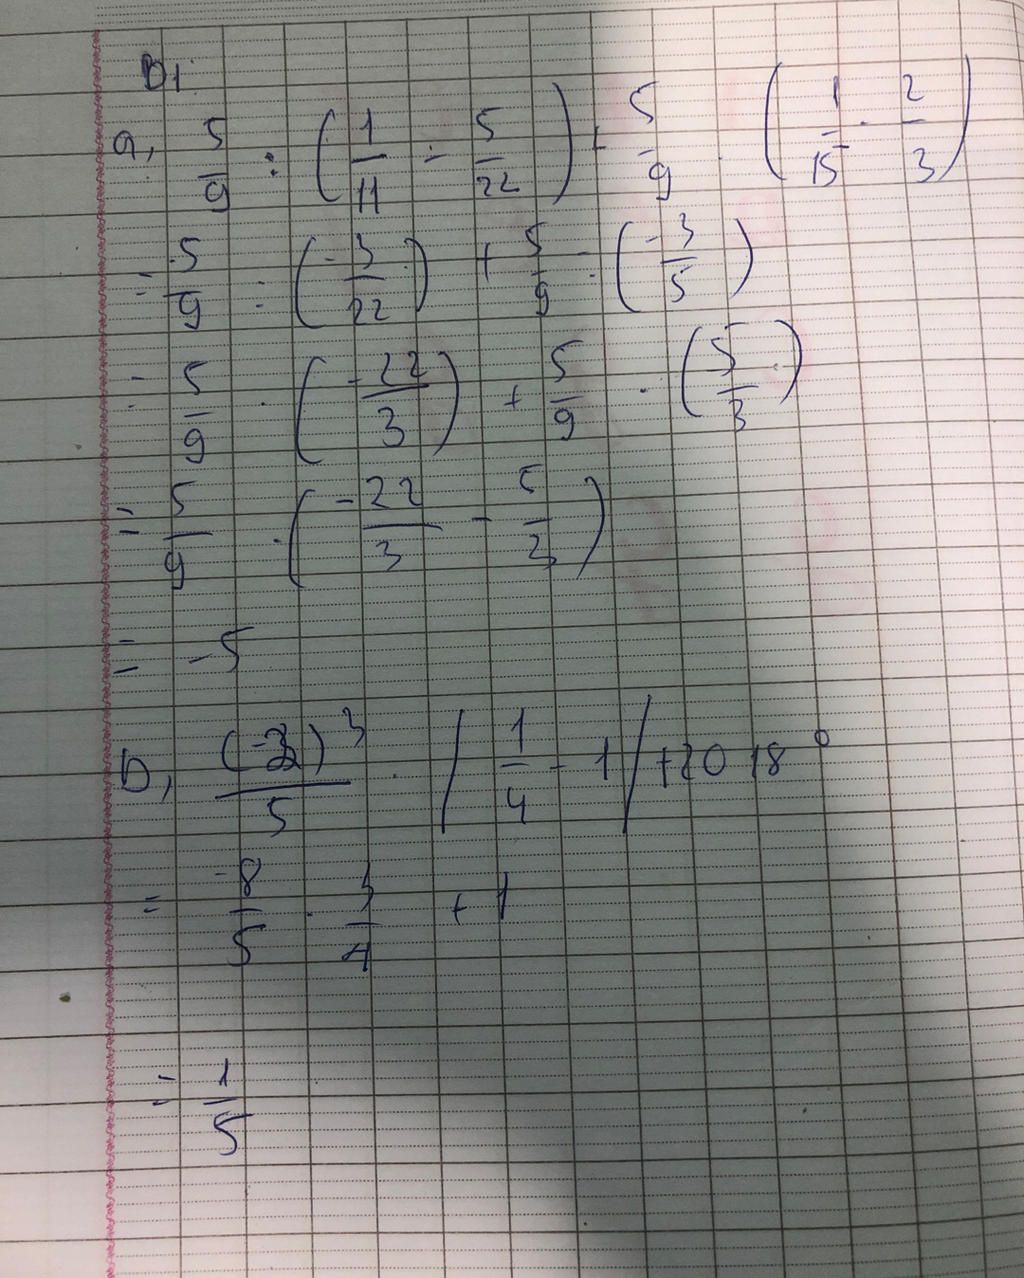 B1
a, 5/9 : (1/11 - 5/22) + 5/9 : (1/15 - 2/3)
= 5/9 : (-3/22) + 5/9 : (-3/5)
= 5/9 . (-22/3) + 5/9 . (5/3)
= 5/9 . (-22/3 - 5/3)
= -5
b, (-2)³/5 . |1/4 - 1| + 2018⁰
= -8/5 . 3/4 + 1
= 1/5